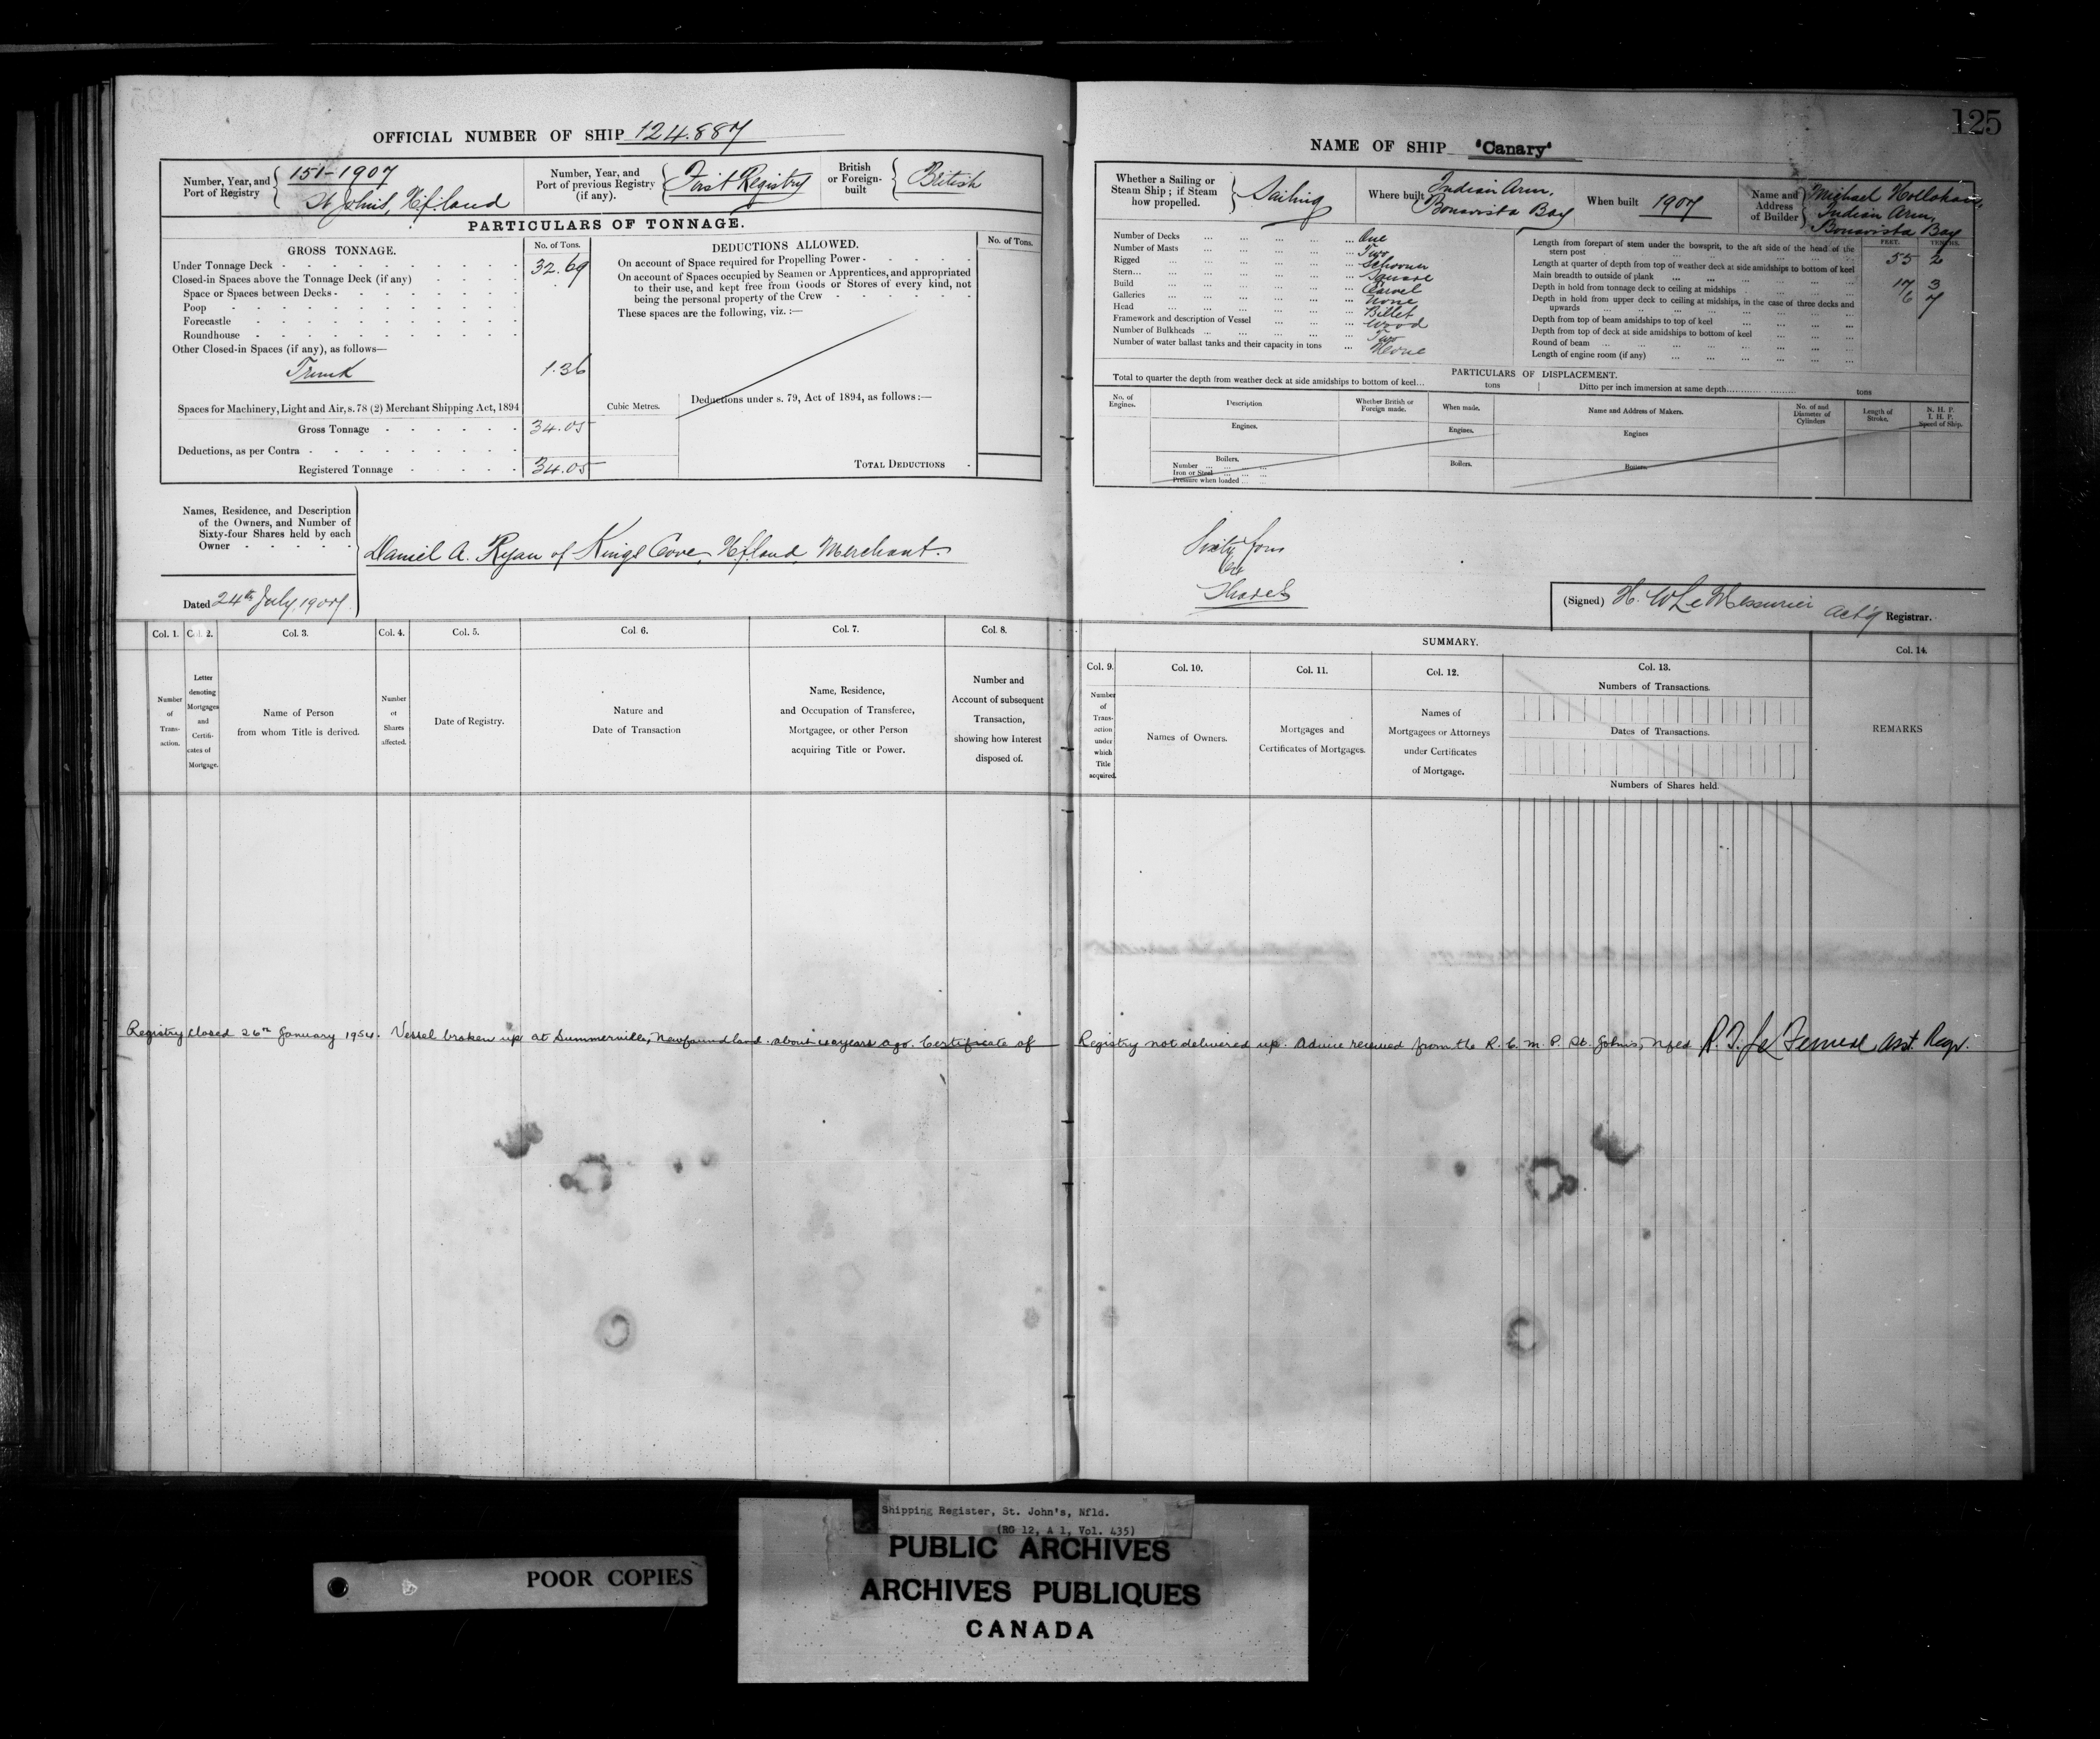 125
OFFICIAL NUMBER OF SHIP 124.887
Number, Year, and Port of Registry
151-1907
St Johns, Nfland
Number, Year, and Port of previous Registry (if any).
First Registry
British or Foreign-built
British
PARTICULARS OF TONNAGE.
GROSS TONNAGE.
No. of Tons.
Under Tonnage Deck 32.69
Closed-in Spaces above the Tonnage Deck (if any)
Space or Spaces between Decks
Poop
Forecastle
Roundhouse
Other Closed-in Spaces (if any), as follows—
Trunk 1.36
Spaces for Machinery, Light and Air, s. 78 (2) Merchant Shipping Act, 1894
Gross Tonnage 34.05
Deductions, as per Contra
Registered Tonnage 34.05
Cubic Metres.
DEDUCTIONS ALLOWED.
No. of Tons.
On account of Space required for Propelling Power
On account of Spaces occupied by Seamen or Apprentices, and appropriated
to their use, and kept free from Goods or Stores of every kind, not
being the personal property of the Crew
These spaces are the following, viz. :—
Deductions under s. 79, Act of 1894, as follows :—
TOTAL DEDUCTIONS
NAME OF SHIP "Canary"
Whether a Sailing or Steam Ship ; if Steam how propelled.
Sailing
Where built
Indian Arm,
Bonavista Bay
When built 1907
Name and Address of Builder
Michael
Indian Arm,
Bonavista Bay
Number of Decks One
Number of Masts Two
Rigged Schooner
Stern Square
Build Carvel
Galleries None
Head Billet
Framework and description of Vessel Wood
Number of Bulkheads Two
Number of water ballast tanks and their capacity in tons None
FEET. TENTHS.
Length from forepart of stem under the bowsprit, to the aft side of the head of the
stern post 55 2
Length at quarter of depth from top of weather deck at side amidships to bottom of keel
Main breadth to outside of plank 17 3
Depth in hold from tonnage deck to ceiling at midships 6 7
Depth in hold from upper deck to ceiling at midships, in the case of three decks and
upwards
Depth from top of beam amidships to top of keel
Depth from top of deck at side amidships to bottom of keel
Round of beam
Length of engine room (if any)
PARTICULARS OF DISPLACEMENT.
Total to quarter the depth from weather deck at side amidships to bottom of keel... tons
Ditto per inch immersion at same depth... tons
No. of Engines.
Description
Whether British or Foreign made.
When made.
Name and Address of Makers.
No. of and Diameter of Cylinders
Length of Stroke.
N. H. P.
I. H. P.
Speed of Ship.
Engines.
Engines.
Engines
Boilers.
Number
Iron or Steel
Pressure when loaded
Boilers.
Boilers.
Names, Residence, and Description
of the Owners, and Number of
Sixty-four Shares held by each
Owner
Daniel A. Ryan of Kings Cove, Nfland, Merchant.
Sixty four
64
Shares
Dated 24th July, 1907.
(Signed) H. W. LeMessurier Act'g Registrar.
Col. 1. Col. 2. Col. 3. Col. 4. Col. 5. Col. 6. Col. 7. Col. 8.
Number of Trans-action.
Letter denoting Mortgages and Certifi-cates of Mortgage.
Name of Person from whom Title is derived.
Number of Shares affected.
Date of Registry.
Nature and Date of Transaction
Name, Residence, and Occupation of Transferee, Mortgagee, or other Person acquiring Title or Power.
Number and Account of subsequent Transaction, showing how Interest disposed of.
SUMMARY.
Col. 9. Col. 10. Col. 11. Col. 12. Col. 13. Col. 14.
Number of Trans-action under which Title acquired.
Names of Owners.
Mortgages and Certificates of Mortgages.
Names of Mortgagees or Attorneys under Certificates of Mortgage.
Numbers of Transactions.
Dates of Transactions.
Numbers of Shares held.
REMARKS
Registry closed 26th January 1954. Vessel broken up at Summerville, Newfoundland about years ago. Certificate of Registry not delivered up. Advice received from the R. C. M. P. St. Johns, Nfld Asst. Regr.
Shipping Register, St. John's, Nfld.
(RG 12, A 1, Vol. 435)
PUBLIC ARCHIVES
ARCHIVES PUBLIQUES
CANADA
POOR COPIES